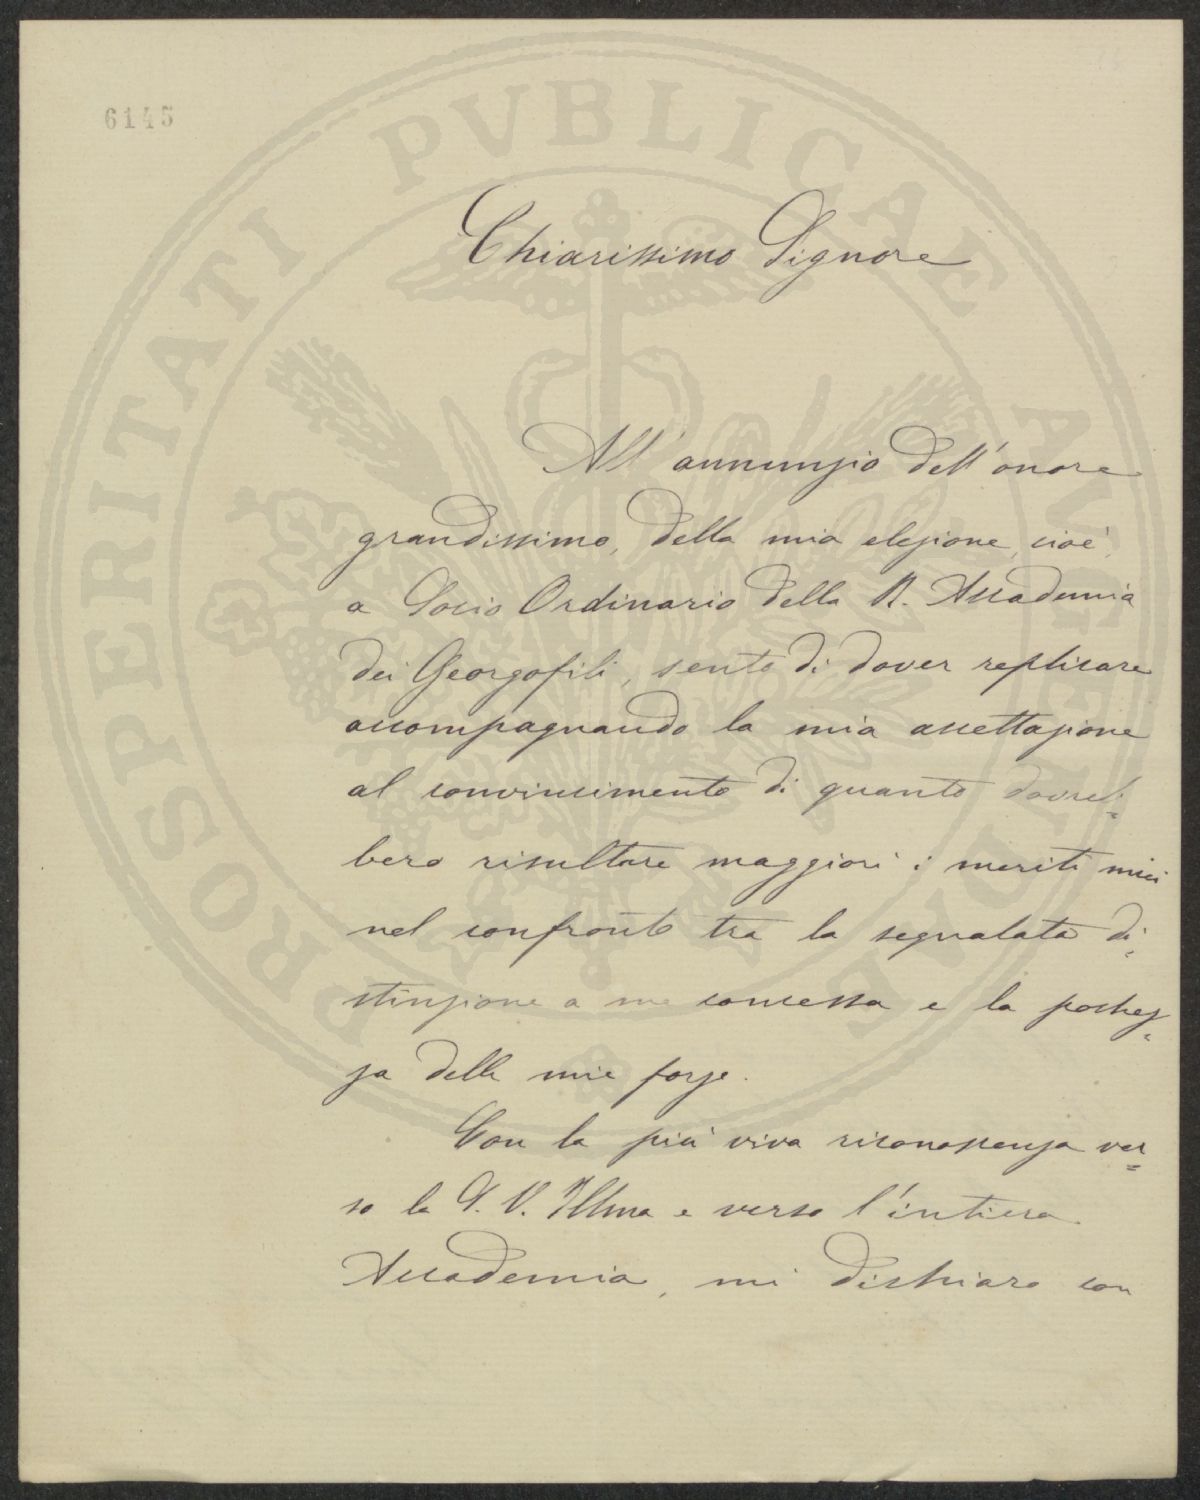 6145
PROSPERITATI PVBLICAE AVGENDAE
Chiarissimo Signore
All'annunzio dell'onore
grandissimo, della mia elezione, cioè,
a Socio Ordinario della R. Accademia
dei Georgofili, sento di dover replicare
accompagnando la mia accettazione
al convincimento di quanto dovreb=
bero risultare maggiori i meriti miei
nel confronto tra la segnalata di=
stinzione a me concessa e la pochez=
za delle mie forze.
Con la più viva riconoscenza ver=
so la S. V. Illma e verso l'intiera
Accademia, mi dichiaro con